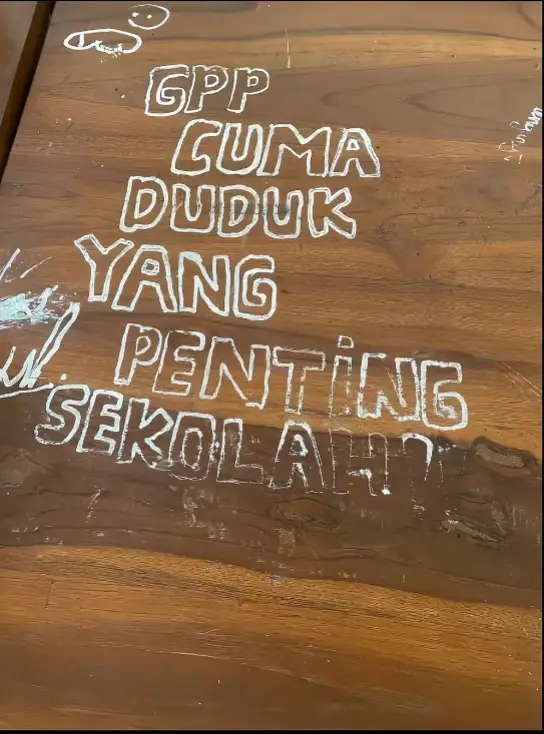 GPP
CUMA
DUDUK
YANG
PENTiNG
SEKOLAH